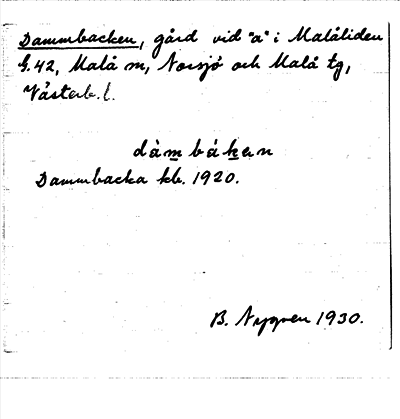 Dammbacken, gård vid "a" i Malåliden
G.42, Malå sn, Norsjö och Malå tg,
Västerb. l.
dàmbáken
Dammbacka kb. 1920.
B. Nygren 1930.